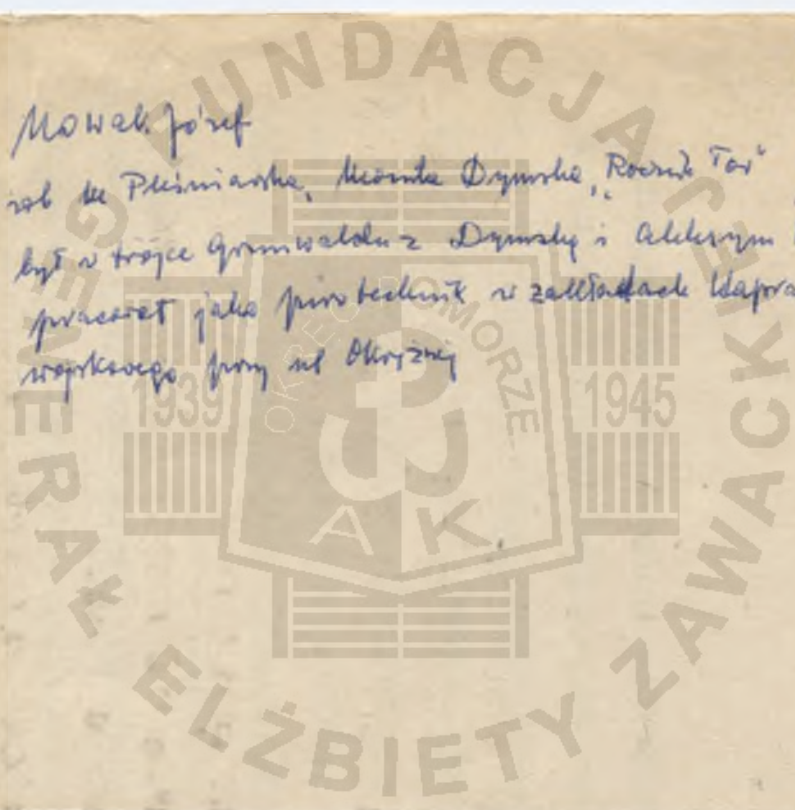 Nowak Józef
zob M Pleśniarska, Monika Dymska, "Rocznik Tor"
był w trójce Grunwaldu z Dymską i Alkszym
pracował jako pirotechnik w zakładach
wojskowego przy ul Okrężnej
FUNDACJA
GENERAŁ ELŻBIETY ZAWACKIEJ
OKRĘG POMORZE
1939
1945
AK